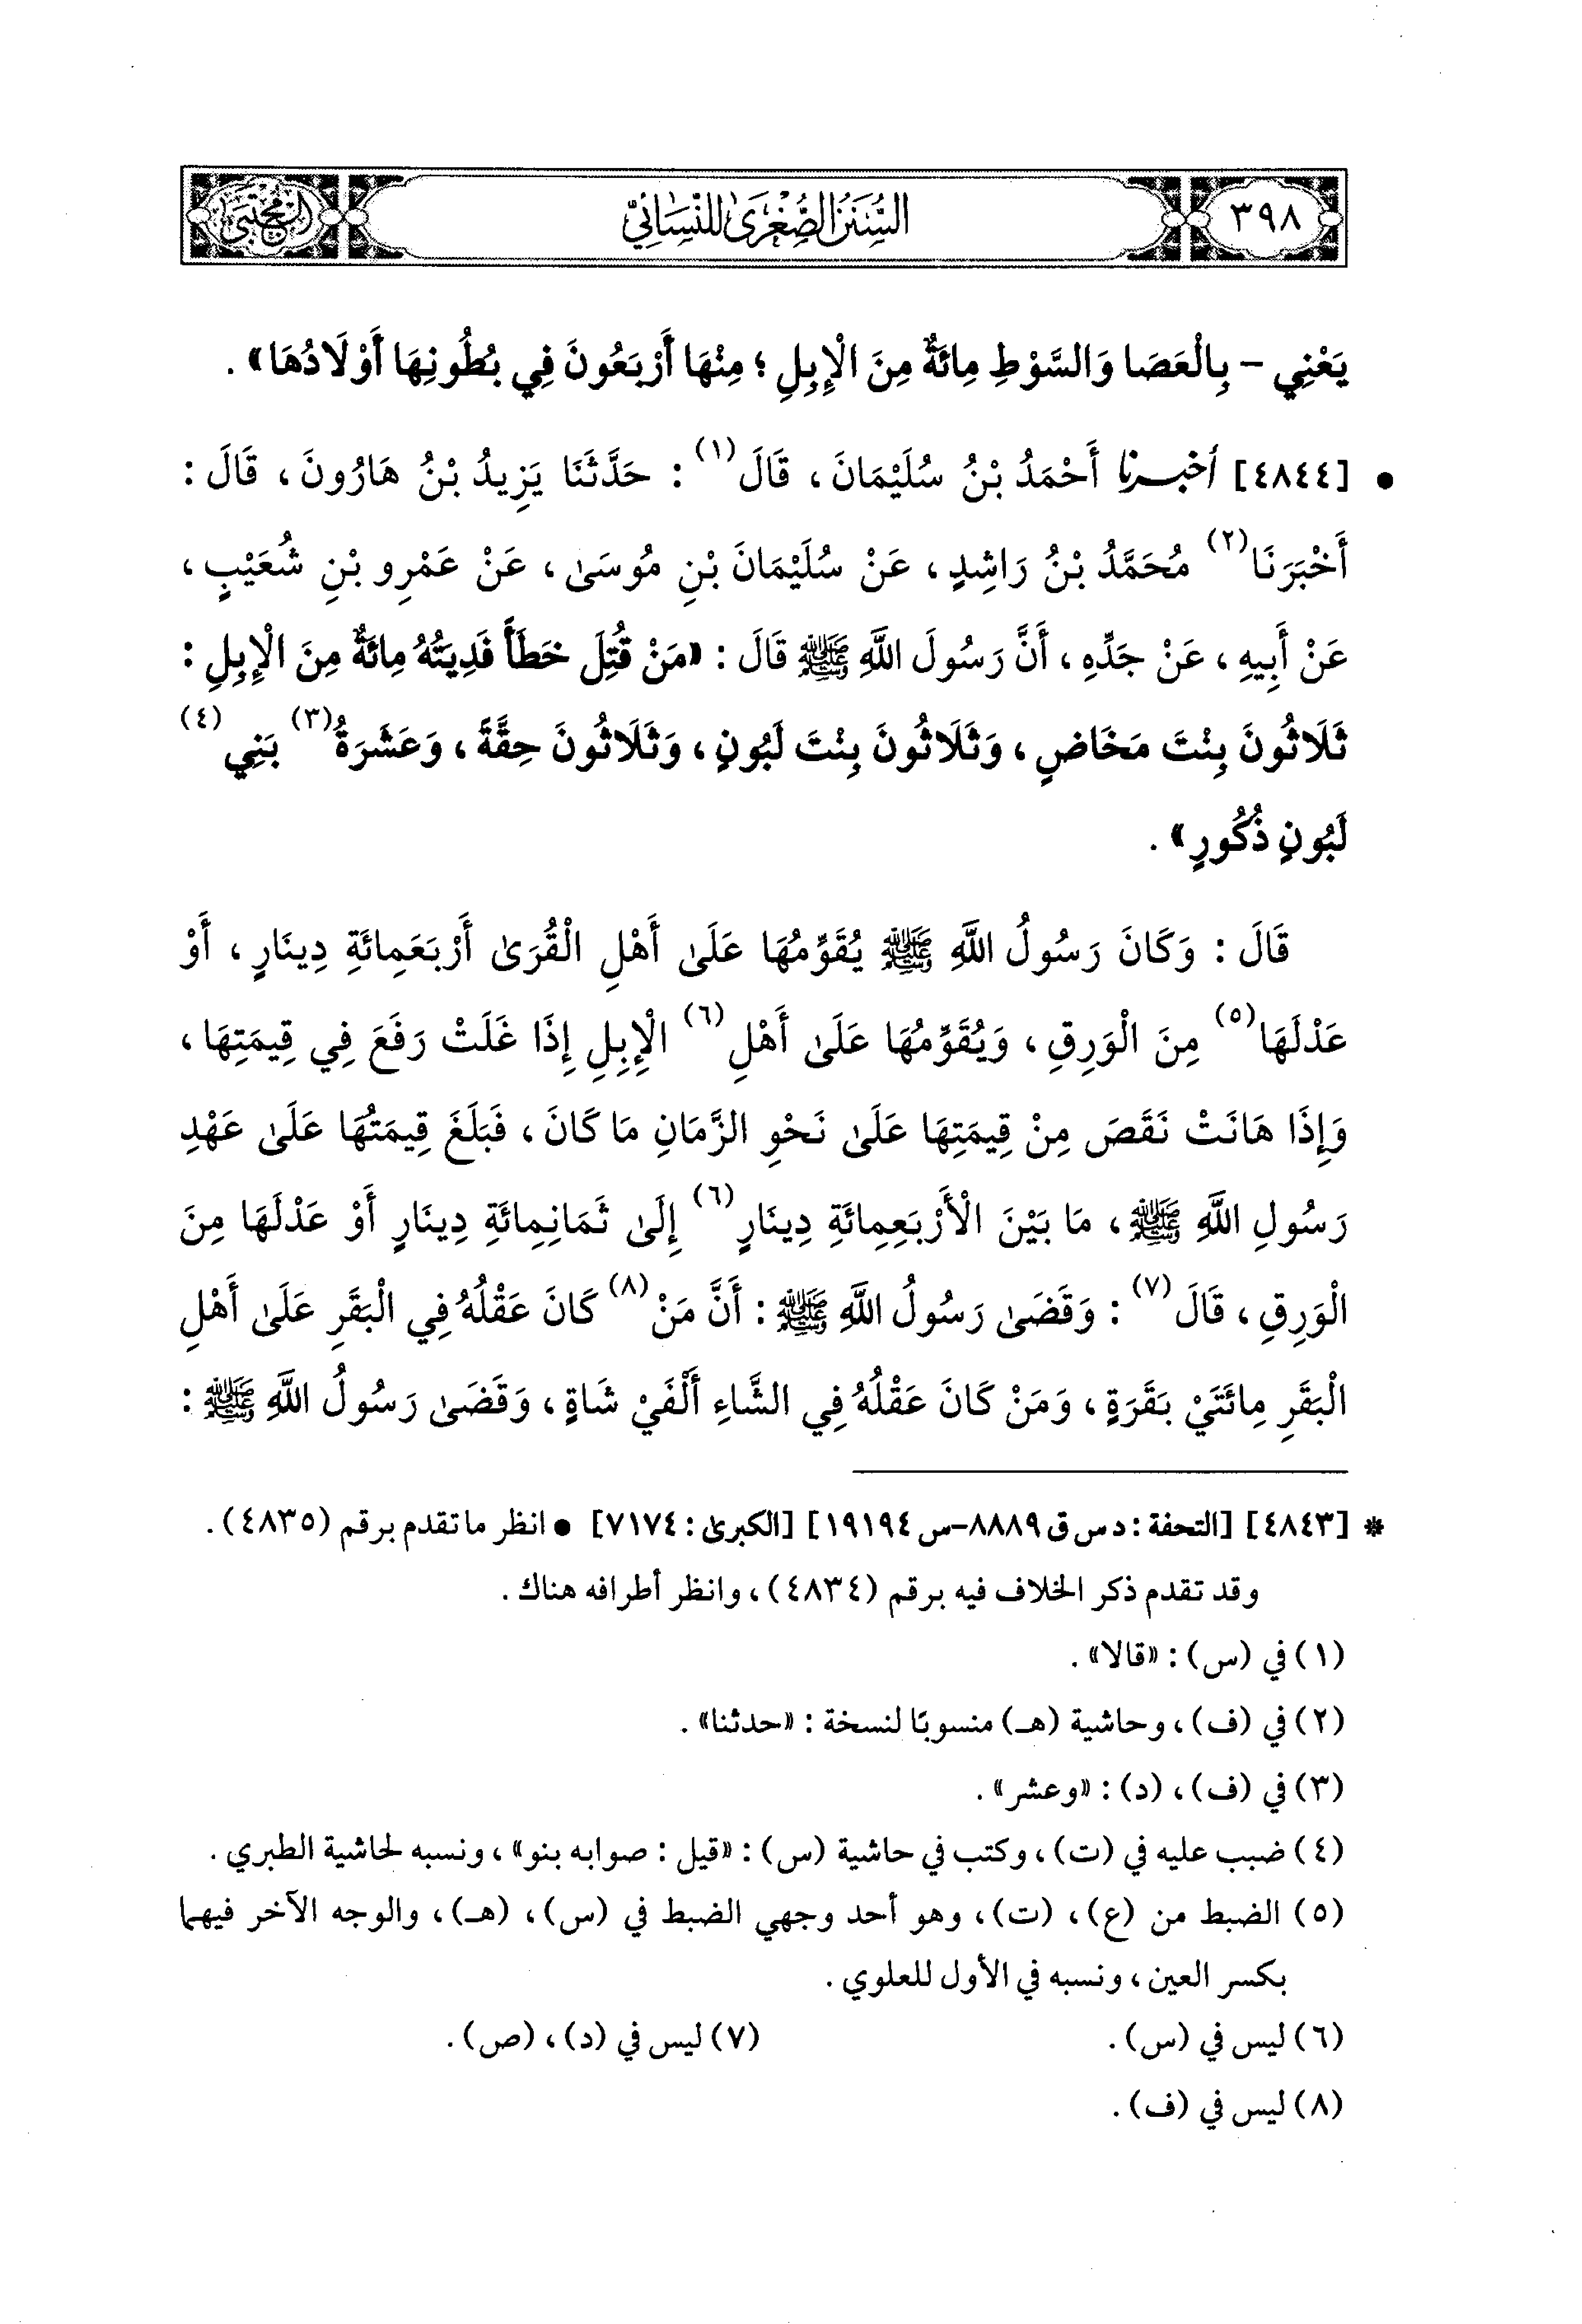 ٣٩٨
السُّنَنُ الصُّغْرَىٰ لِلنَّسَائِيِّ
المجتبى
يَعْنِي - بِالْعَصَا وَالسَّوْطِ مِائَةٌ مِنَ الْإِبِلِ ؛ مِنْهَا أَرْبَعُونَ فِي بُطُونِهَا أَوْلَادُهَا» .
• [٤٨٤٤] أخبرنا أَحْمَدُ بْنُ سُلَيْمَانَ ، قَالَ (١) : حَدَّثَنَا يَزِيدُ بْنُ هَارُونَ ، قَالَ :
أَخْبَرَنَا (٢) مُحَمَّدُ بْنُ رَاشِدٍ ، عَنْ سُلَيْمَانَ بْنِ مُوسَىٰ ، عَنْ عَمْرِو بْنِ شُعَيْبٍ ،
عَنْ أَبِيهِ ، عَنْ جَدِّهِ ، أَنَّ رَسُولَ اللَّهِ ﷺ قَالَ : «مَنْ قُتِلَ خَطَأً فَدِيَتُهُ مِائَةٌ مِنَ الْإِبِلِ :
ثَلَاثُونَ بِنْتَ مَخَاضٍ ، وَثَلَاثُونَ بِنْتَ لَبُونٍ ، وَثَلَاثُونَ حِقَّةً ، وَعَشَرَةُ (٣) بَنِي (٤)
لَبُونٍ ذُكُورٍ» .
قَالَ : وَكَانَ رَسُولُ اللَّهِ ﷺ يُقَوِّمُهَا عَلَىٰ أَهْلِ الْقُرَىٰ أَرْبَعَمِائَةِ دِينَارٍ ، أَوْ
عَدْلَهَا (٥) مِنَ الْوَرِقِ ، وَيُقَوِّمُهَا عَلَىٰ أَهْلِ (٦) الْإِبِلِ إِذَا غَلَتْ رَفَعَ فِي قِيمَتِهَا ،
وَإِذَا هَانَتْ نَقَصَ مِنْ قِيمَتِهَا عَلَىٰ نَحْوِ الزَّمَانِ مَا كَانَ ، فَبَلَغَ قِيمَتُهَا عَلَىٰ عَهْدِ
رَسُولِ اللَّهِ ﷺ ، مَا بَيْنَ الْأَرْبَعِمِائَةِ دِينَارٍ (٦) إِلَىٰ ثَمَانِمِائَةِ دِينَارٍ أَوْ عَدْلَهَا مِنَ
الْوَرِقِ ، قَالَ (٧) : وَقَضَىٰ رَسُولُ اللَّهِ ﷺ : أَنَّ مَنْ (٨) كَانَ عَقْلُهُ فِي الْبَقَرِ عَلَىٰ أَهْلِ
الْبَقَرِ مِائَتَيْ بَقَرَةٍ ، وَمَنْ كَانَ عَقْلُهُ فِي الشَّاءِ أَلْفَيْ شَاةٍ ، وَقَضَىٰ رَسُولُ اللَّهِ ﷺ :
* [٤٨٤٣] [التحفة : د س ق ٨٨٨٩-س ١٩١٩٤] [الكبرى : ٧١٧٤] • انظر ما تقدم برقم (٤٨٣٥) .
وقد تقدم ذكر الخلاف فيه برقم (٤٨٣٤) ، وانظر أطرافه هناك .
(١) في (س) : «قالا» .
(٢) في (ف) ، وحاشية (هـ) منسوبًا لنسخة : «حدثنا» .
(٣) في (ف) ، (د) : «وعشر» .
(٤) ضبب عليه في (ت) ، وكتب في حاشية (س) : «قيل : صوابه بنو» ، ونسبه لحاشية الطبري .
(٥) الضبط من (ع) ، (ت) ، وهو أحد وجهي الضبط في (س) ، (هـ) ، والوجه الآخر فيهما
بكسر العين ، ونسبه في الأول للعلوي .
(٦) ليس في (س) . (٧) ليس في (د) ، (ص) .
(٨) ليس في (ف) .